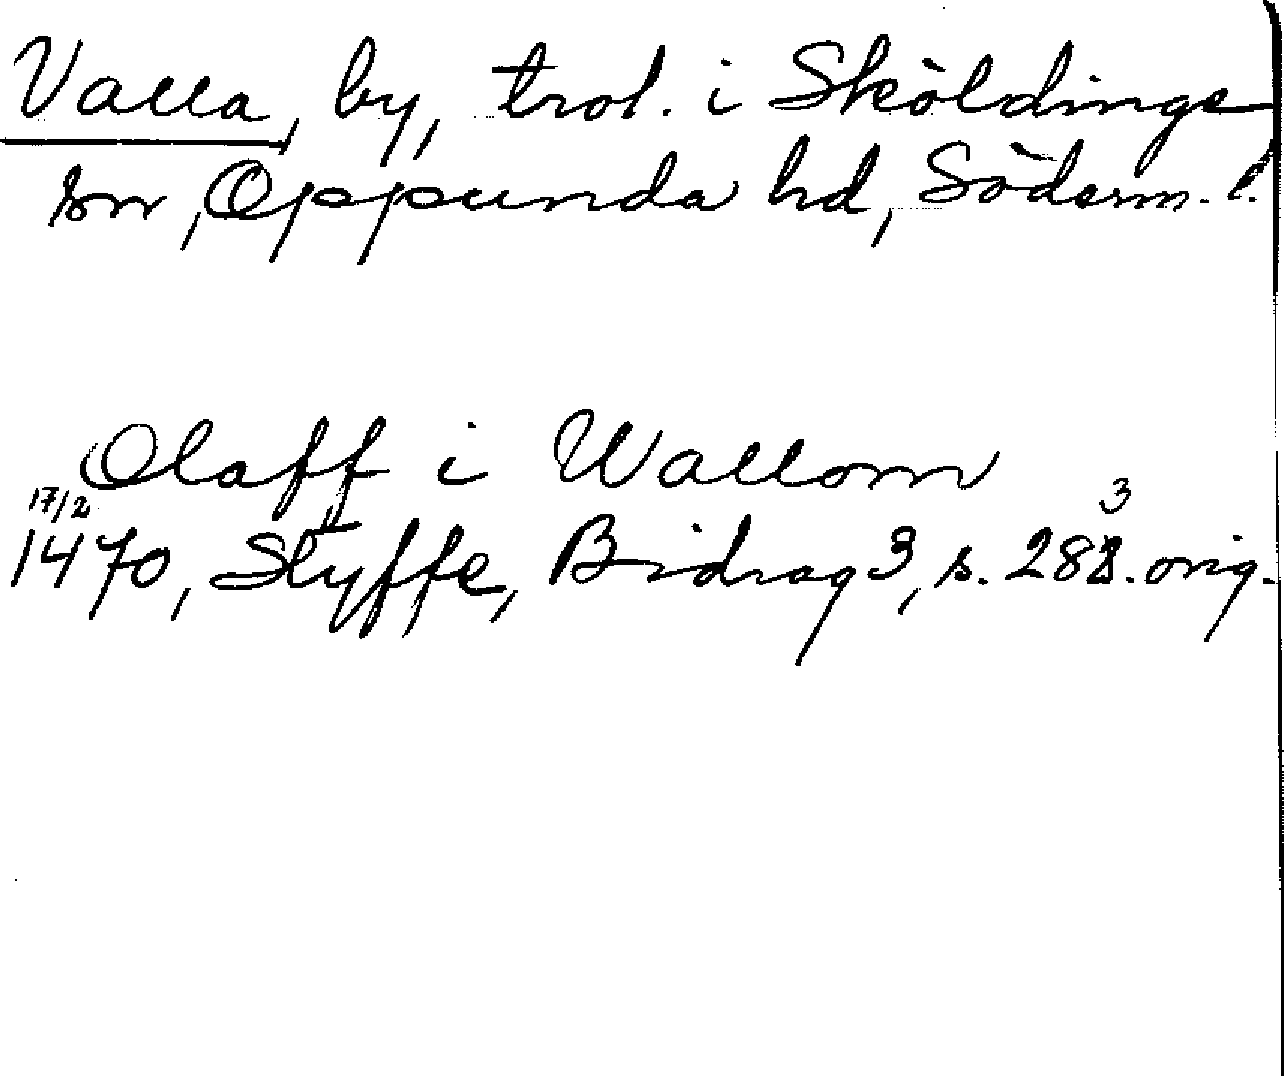 Valla, by, trol. i Sköldinge
sn, Oppunda hd, Söderm. l.
Olaff i Wallom
17/2 3
1470, Styffe, Bidrag 3, s. 282. orig.